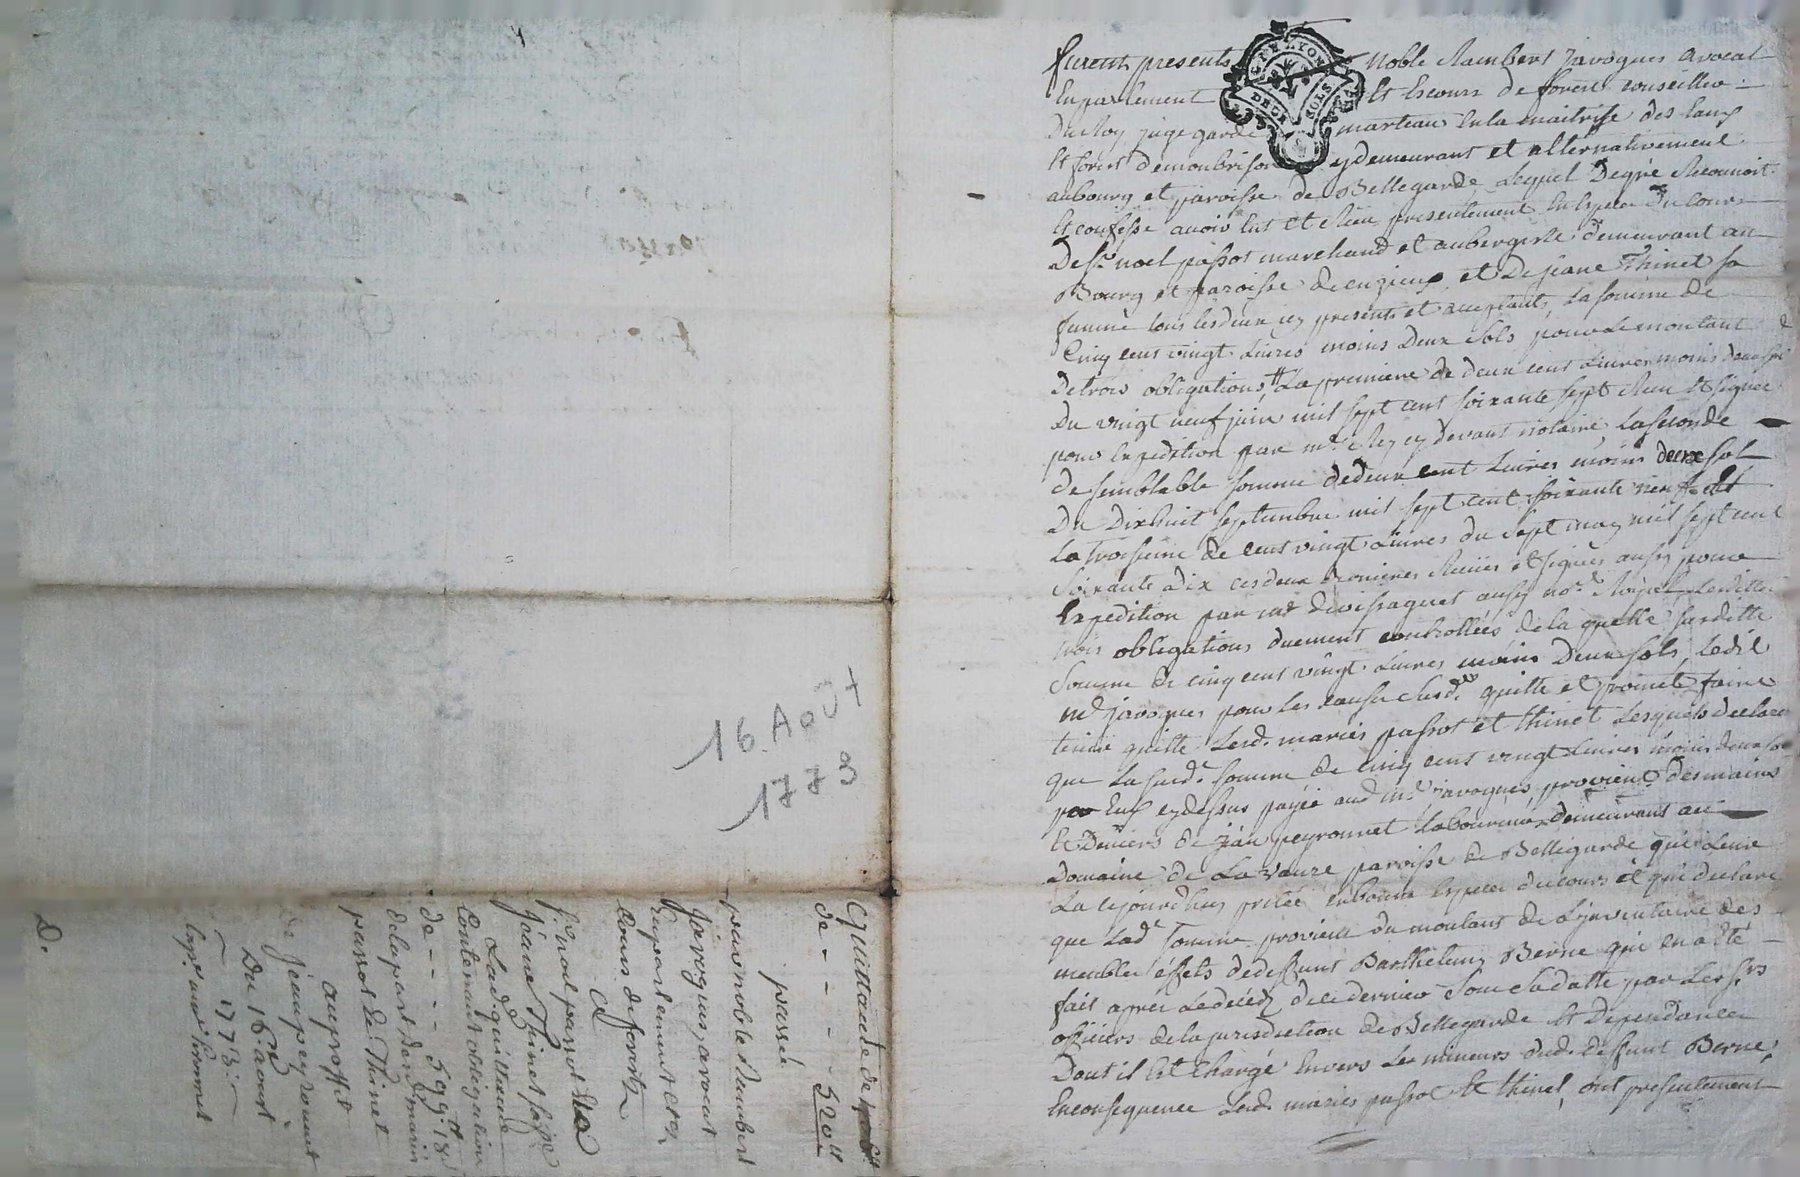 furent presents Noble Rambert Javogues avocat
En parlement Et Escours de forest conseiller
Du Roy juge garde marteau En la maitrise des Eaux
Et forest demonbrison y demeurant et alternativement
au bourg et paroisse de Bellegarde Lequel De gré Reconnoit
Et confesse avoir Eus et Reçu presentement En Espece Du cours
De Sr. noel passot marchand et aubergiste demeurant au
Bourg et paroisse de cuzieux et De jeane Thinet sa
femme tous les deux icy presents et acceptants, La somme de
Cinq cent vingt Livres moins Deux sols pour Le montant
De trois obligations, La premiere de deux cent Livres moins deux sols
Du vingt neuf juin mil sept cent soixante sept Reçu Et signée
pour Expedition par me. Rey cy devant notaire La seconde
de semblable somme de deux cent Livres moins deux sol
Du Dixhuit septembre mil sept cent soixante neuf et
La troisieme de cent vingt Livres du sept may mil sept cent
Soixante à dix ces deux dernieres Reçües et signées aussy pour
Expedition par me aussy no.re Royal, Lesdittes
trois obligations duement controllées de la quelle susditte
Somme de cinq cent vingt Livres moins Deux sols, Ledit
me. javogues pour les causes susd.es quitte et promet faire
tenir quitte Lesd. mariés passot et thinet Lesquels declare
que La susd.e somme de cinq cent vingt Livres moins deux sols
par Eux cy dessus payée aud. me. javogues provient des mains
Et Deniers de jean peyronnet Laboureur demeurant au
Domaine de La paroisse de Bellegarde qui Leur
L'a cejourdhuy prêtée En bonne Espece du cours et qui declare
que Lad.e somme provient du montant de L'inventaire des
meubles effets de deffunt Barthelemy Berne qui en a été
fait après Le décéd de ce dernier sous sa datte par Les srs
officiers de la jurisdiction de Bellegarde Et Dependances
Dont il Est chargé Envers Les mineurs dud. deffunt Berne,
En consequence Lesd. mariés passot Et thinet, ont presentement
16 AOÛT
1773
Quittance de
de - - - 520 ll
passée
par noble Rambert
Javogues, avocat
En parlement Et Es
Cours de forest
A
sr. noel passot Et a
jeane Thinet sa fe
Lad. quittance
Contenant obligation
de - - - 599 ll 18 s
de la part desd. mariés
passot Et Thinet
au proffit
de jean peyronnet
Du 16e. aoust
1773
D.